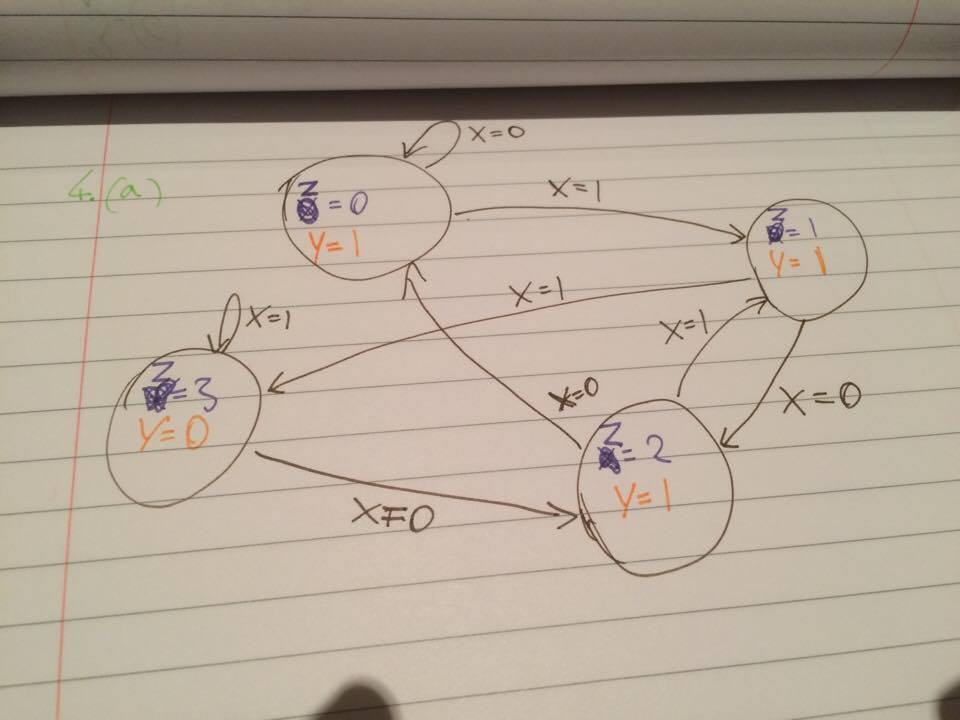 4.(a)
X=0
Z=0
Y=1
X=1
Z=1
Y=1
X=1
X=1
X=1
Z=3
Y=0
X=0
X=0
Z=2
Y=1
X=0